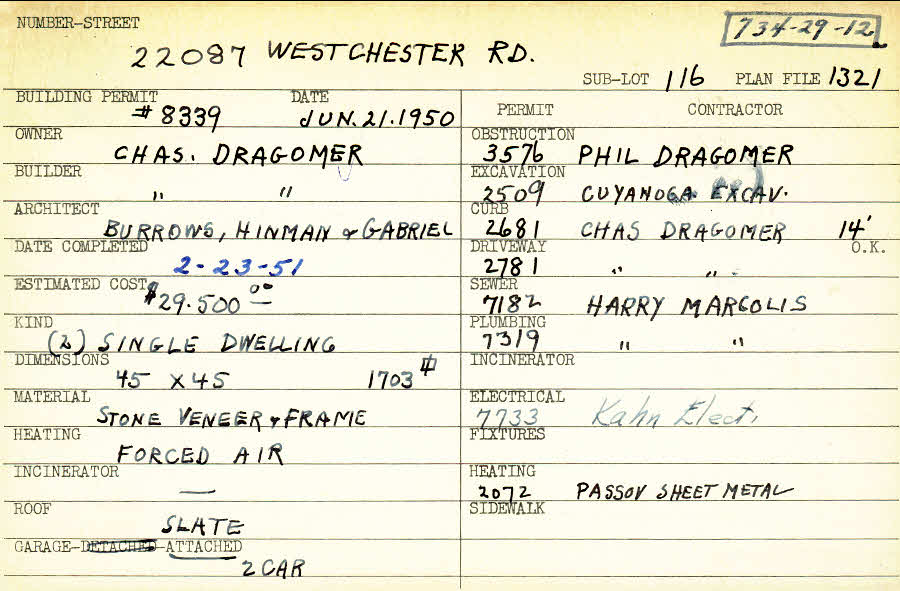 NUMBER-STREET
734-29-12
22087 WESTCHESTER RD.
SUB-LOT 116 PLAN FILE 1321
BUILDING PERMIT DATE
# 8339 JUN. 21. 1950
OWNER
CHAS. DRAGOMER
BUILDER
" "
ARCHITECT
BURROWS, HINMAN & GABRIEL
DATE COMPLETED
2-23-51
ESTIMATED COST
$29.500 00
KIND
(2) SINGLE DWELLING
DIMENSIONS
45 X 45 1703
MATERIAL
STONE VENEER & FRAME
HEATING
FORCED AIR
INCINERATOR
—
ROOF
SLATE
GARAGE-DETACHED-ATTACHED
2 CAR
PERMIT CONTRACTOR
OBSTRUCTION
3576 PHIL DRAGOMER
EXCAVATION
2509 CUYAHOGA EXCAV.
CURB
2681 CHAS DRAGOMER 14'
DRIVEWAY O.K.
2781 " "
SEWER
7182 HARRY MARGOLIS
PLUMBING
7319 " "
INCINERATOR
ELECTRICAL
7733 Kahn Elect.
FIXTURES
HEATING
2072 PASSOV SHEET METAL
SIDEWALK